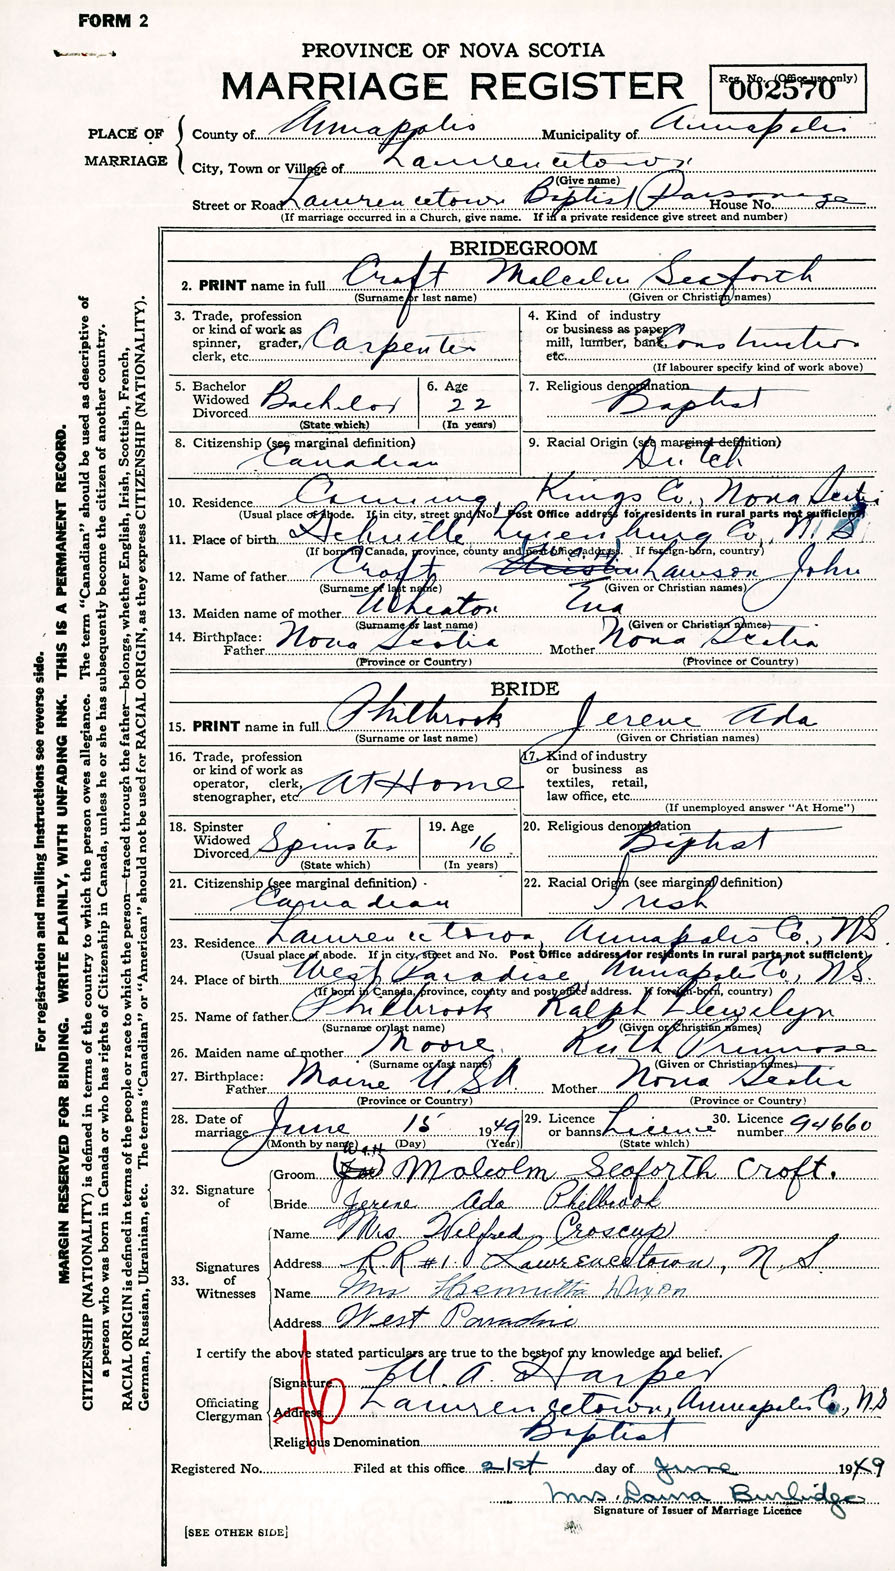 FORM 2
PROVINCE OF NOVA SCOTIA
MARRIAGE REGISTER
Reg. No. (Office use only)
002570
PLACE OF MARRIAGE
County of Annapolis Municipality of Annapolis
City, Town or Village of Lawrencetown
(Give name)
Street or Road Lawrencetown Baptist Parsonage House No.
(If marriage occurred in a Church, give name. If in a private residence give street and number)
BRIDEGROOM
2. PRINT name in full Croft Malcolm Seaforth
(Surname or last name) (Given or Christian names)
3. Trade, profession or kind of work as spinner, grader, clerk, etc. Carpenter
4. Kind of industry or business as paper mill, lumber, bank etc. Construction
(If labourer specify kind of work above)
5. Bachelor Widowed Divorced Bachelor
(State which)
6. Age 22
(In years)
7. Religious denomination Baptist
8. Citizenship (see marginal definition) Canadian
9. Racial Origin (see marginal definition) Dutch
10. Residence Canning, Kings Co., Nova Scotia
(Usual place of abode. If in city, street and No. Post Office address for residents in rural parts not sufficient)
11. Place of birth Lunenburg Co., N.S
(If born in Canada, province, county and post office address. If foreign-born, country)
12. Name of father Croft Lawson John
(Surname or last name) (Given or Christian names)
13. Maiden name of mother Wheaton Ena
(Surname or last name) (Given or Christian names)
14. Birthplace: Father Nova Scotia Mother Nova Scotia
(Province or Country) (Province or Country)
BRIDE
15. PRINT name in full Philbrook Jerene Ada
(Surname or last name) (Given or Christian names)
16. Trade, profession or kind of work as operator, clerk, stenographer, etc. At Home
17. Kind of industry or business as textiles, retail, law office, etc.
(If unemployed answer "At Home")
18. Spinster Widowed Divorced Spinster
(State which)
19. Age 16
(In years)
20. Religious denomination Baptist
21. Citizenship (see marginal definition) Canadian
22. Racial Origin (see marginal definition) Irish
23. Residence Lawrencetown, Annapolis Co., NS.
(Usual place of abode. If in city, street and No. Post Office address for residents in rural parts not sufficient)
24. Place of birth West Paradise Annapolis Co, NS.
(If born in Canada, province, county and post office address. If foreign-born, country)
25. Name of father Philbrook Ralph Llewelyn
(Surname or last name) (Given or Christian names)
26. Maiden name of mother Moore Ruth Primrose
(Surname or last name) (Given or Christian names)
27. Birthplace: Father Maine U.S.A Mother Nova Scotia
(Province or Country) (Province or Country)
28. Date of marriage June 15 1949
(Month by name) (Day) (Year)
29. Licence or banns License
(State which)
30. Licence number 94660
32. Signature of
W.A.H
Groom Malcolm Seaforth Croft.
Bride Jerene Ada Philbrook
33. Signatures of Witnesses
Name Mrs Wilfred Croscup
Address R.R #1. Lawrencetown, N.S.
Name Mrs Henrietta Dixon
Address West Paradise
I certify the above stated particulars are true to the best of my knowledge and belief.
Officiating Clergyman
Signature W. A. Harper
Address Lawrencetown, Annapolis Co, N.S
Religious Denomination Baptist
Registered No. Filed at this office 21st day of June 1949
Mrs. Laura Burlidge
Signature of Issuer of Marriage Licence
[SEE OTHER SIDE]
For registration and mailing instructions see reverse side.
MARGIN RESERVED FOR BINDING. WRITE PLAINLY, WITH UNFADING INK. THIS IS A PERMANENT RECORD.
CITIZENSHIP (NATIONALITY) is defined in terms of the country to which the person owes allegiance. The term "Canadian" should be used as descriptive of
a person who was born in Canada or who has rights of Citizenship in Canada, unless he or she has subsequently become the citizen of another country.
RACIAL ORIGIN is defined in terms of the people or race to which the person—traced through the father—belongs, whether English, Irish, Scottish, French,
German, Russian, Ukrainian, etc. The terms "Canadian" or "American" should not be used for RACIAL ORIGIN, as they express CITIZENSHIP (NATIONALITY).